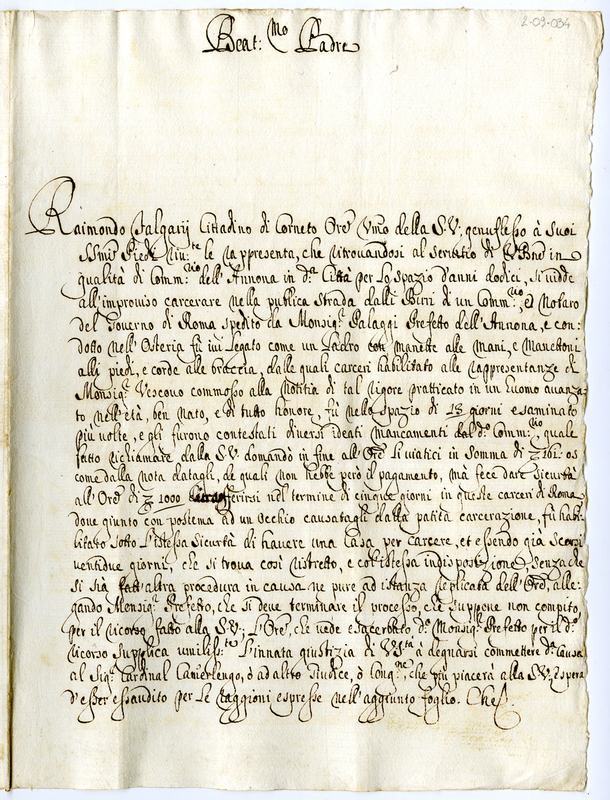 2-09-034
Beat:mo Padre
Raimondo Falgarij Cittadino di Corneto Ore Vmo della S.V: genuflesso à Suoi
SSmi Piedi le rappresenta, che ritrovandosi al servitio di in
qualità di Comm:rio dell'Annona in da Città per lo spazio d'anni dodici, si vidde
all'improviso carcerare nella publica strada dalli Birri di un Comm:rio, e Notaro
del Governo di Roma spedito da Monsigr Palaggi Prefetto dell'Annona, e con=
dotto nell'Osteria fù ivi legato come un Ladro con Manette alle Mani, e Manettoni
alli piedi, e corde alle braccia, dalle quali carceri habilitato alle rappresentanze di
Monsigr Vescovo commosso alla Notitia di tal rigore pratticato in un huomo avanza=
to nell'età, ben Nato, e di tutto honore, fù nello spazio di 13 giorni esaminato
più volte, e gli furono contestati diversi ideati Mancamenti dal do Comm:rio, quale
fatto richiamare dalla S.V. domandò in fine all'Ore li viatici in Somma di 161: 05
come dalla nota datagli, de quali non hebbe però il pagamento, mà fece dare sicurtà
all'Ore di 1000 ferirsi nel termine di cinque giorni in queste carceri di Roma
dove giunto con postema ad un occhio causatagli dalla patita carcerazione, fù habi=
litato sotto l'istessa sicurtà di havere una Casa per carcere, et essendo già scorsi
ventidue giorni, che si trova così ristretto, e coll'istessa indisposizione, senza che
si sia fatt'altra procedura in causa ne pure ad istanza replicata dell'Ore, alle=
gando Monsigr Prefetto, che si deve terminare il processo, che suppone non compito,
per il ricorso fatto alla S.V; L'Ore, che vede do Monsigr Prefetto per il do
ricorso supplica umilisste l'innata giustizia di VSta à degnarsi commettere da Causa
al Sigr Cardinal Camerlengo, ò ad altro Giudice, ò Congne, che più piacerà alla S.V. e spera
d'esser essaudito per le raggioni espresse nell'aggiunto foglio. Che